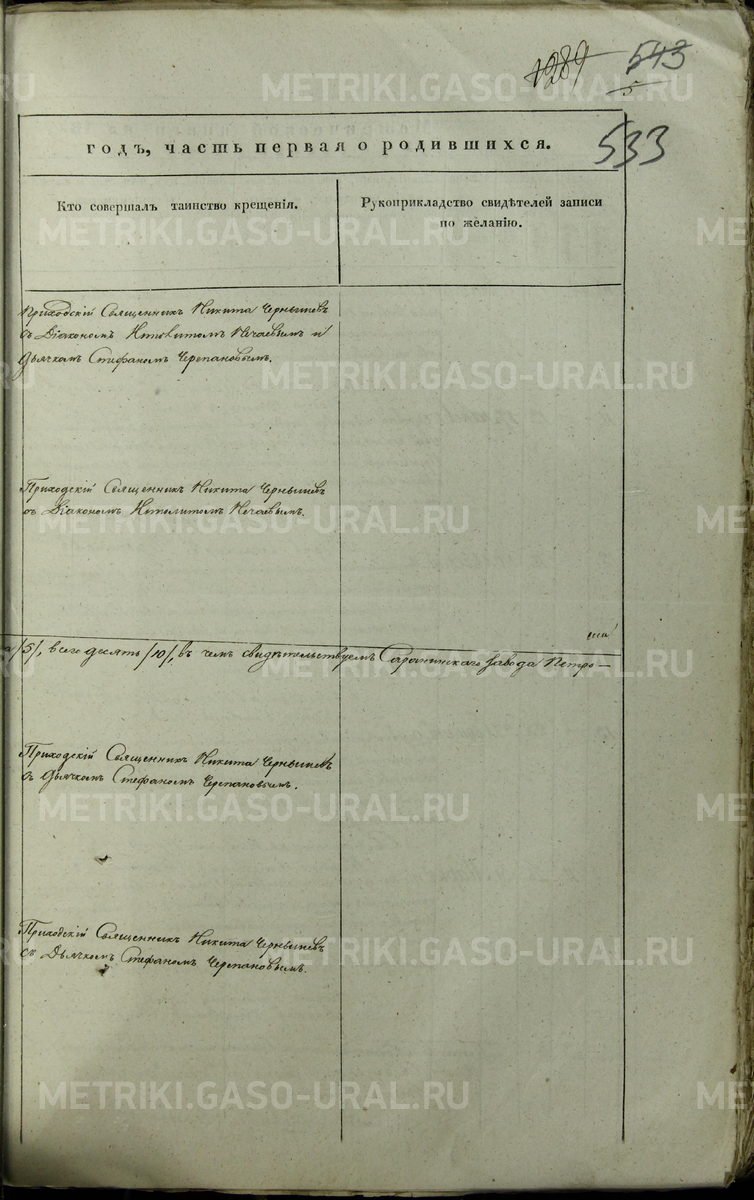 1289 543
5
533
METRIKI.GASO-URAL.RU
годъ, часть первая о родившихся.
Кто совершалъ таинство крещенія.
Рукоприкладство свидѣтелей записи
по желанію.
Приходскій Священникъ Никита Чернышевъ
съ Діакономъ Ипполитомъ Нечаевымъ и
Дьячкомъ Стефаномъ Черепановымъ.
Приходскій Священникъ Никита Чернышевъ
съ Діакономъ Ипполитомъ Нечаевымъ.
/5/, всего десять /10/, въ чемъ свидѣтельствуемъ Саранинскаго завода Петро—
Приходскій Священникъ Никита Чернышевъ
съ Дьячкомъ Стефаномъ Черепановымъ.
Приходскій Священникъ Никита Чернышевъ
съ Дьячкомъ Стефаномъ Черепановымъ.